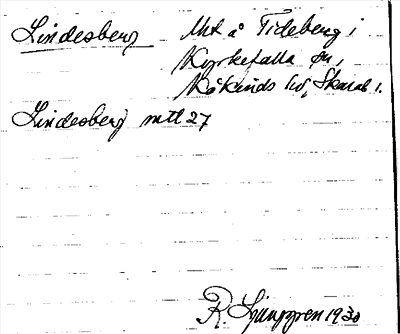 Lindesberg Uht å Tideberg i
Kyrkefalla sn,
Kåkinds hd, Skarab. l.
Lindesberg mtl 27
R. Ljunggren 1930